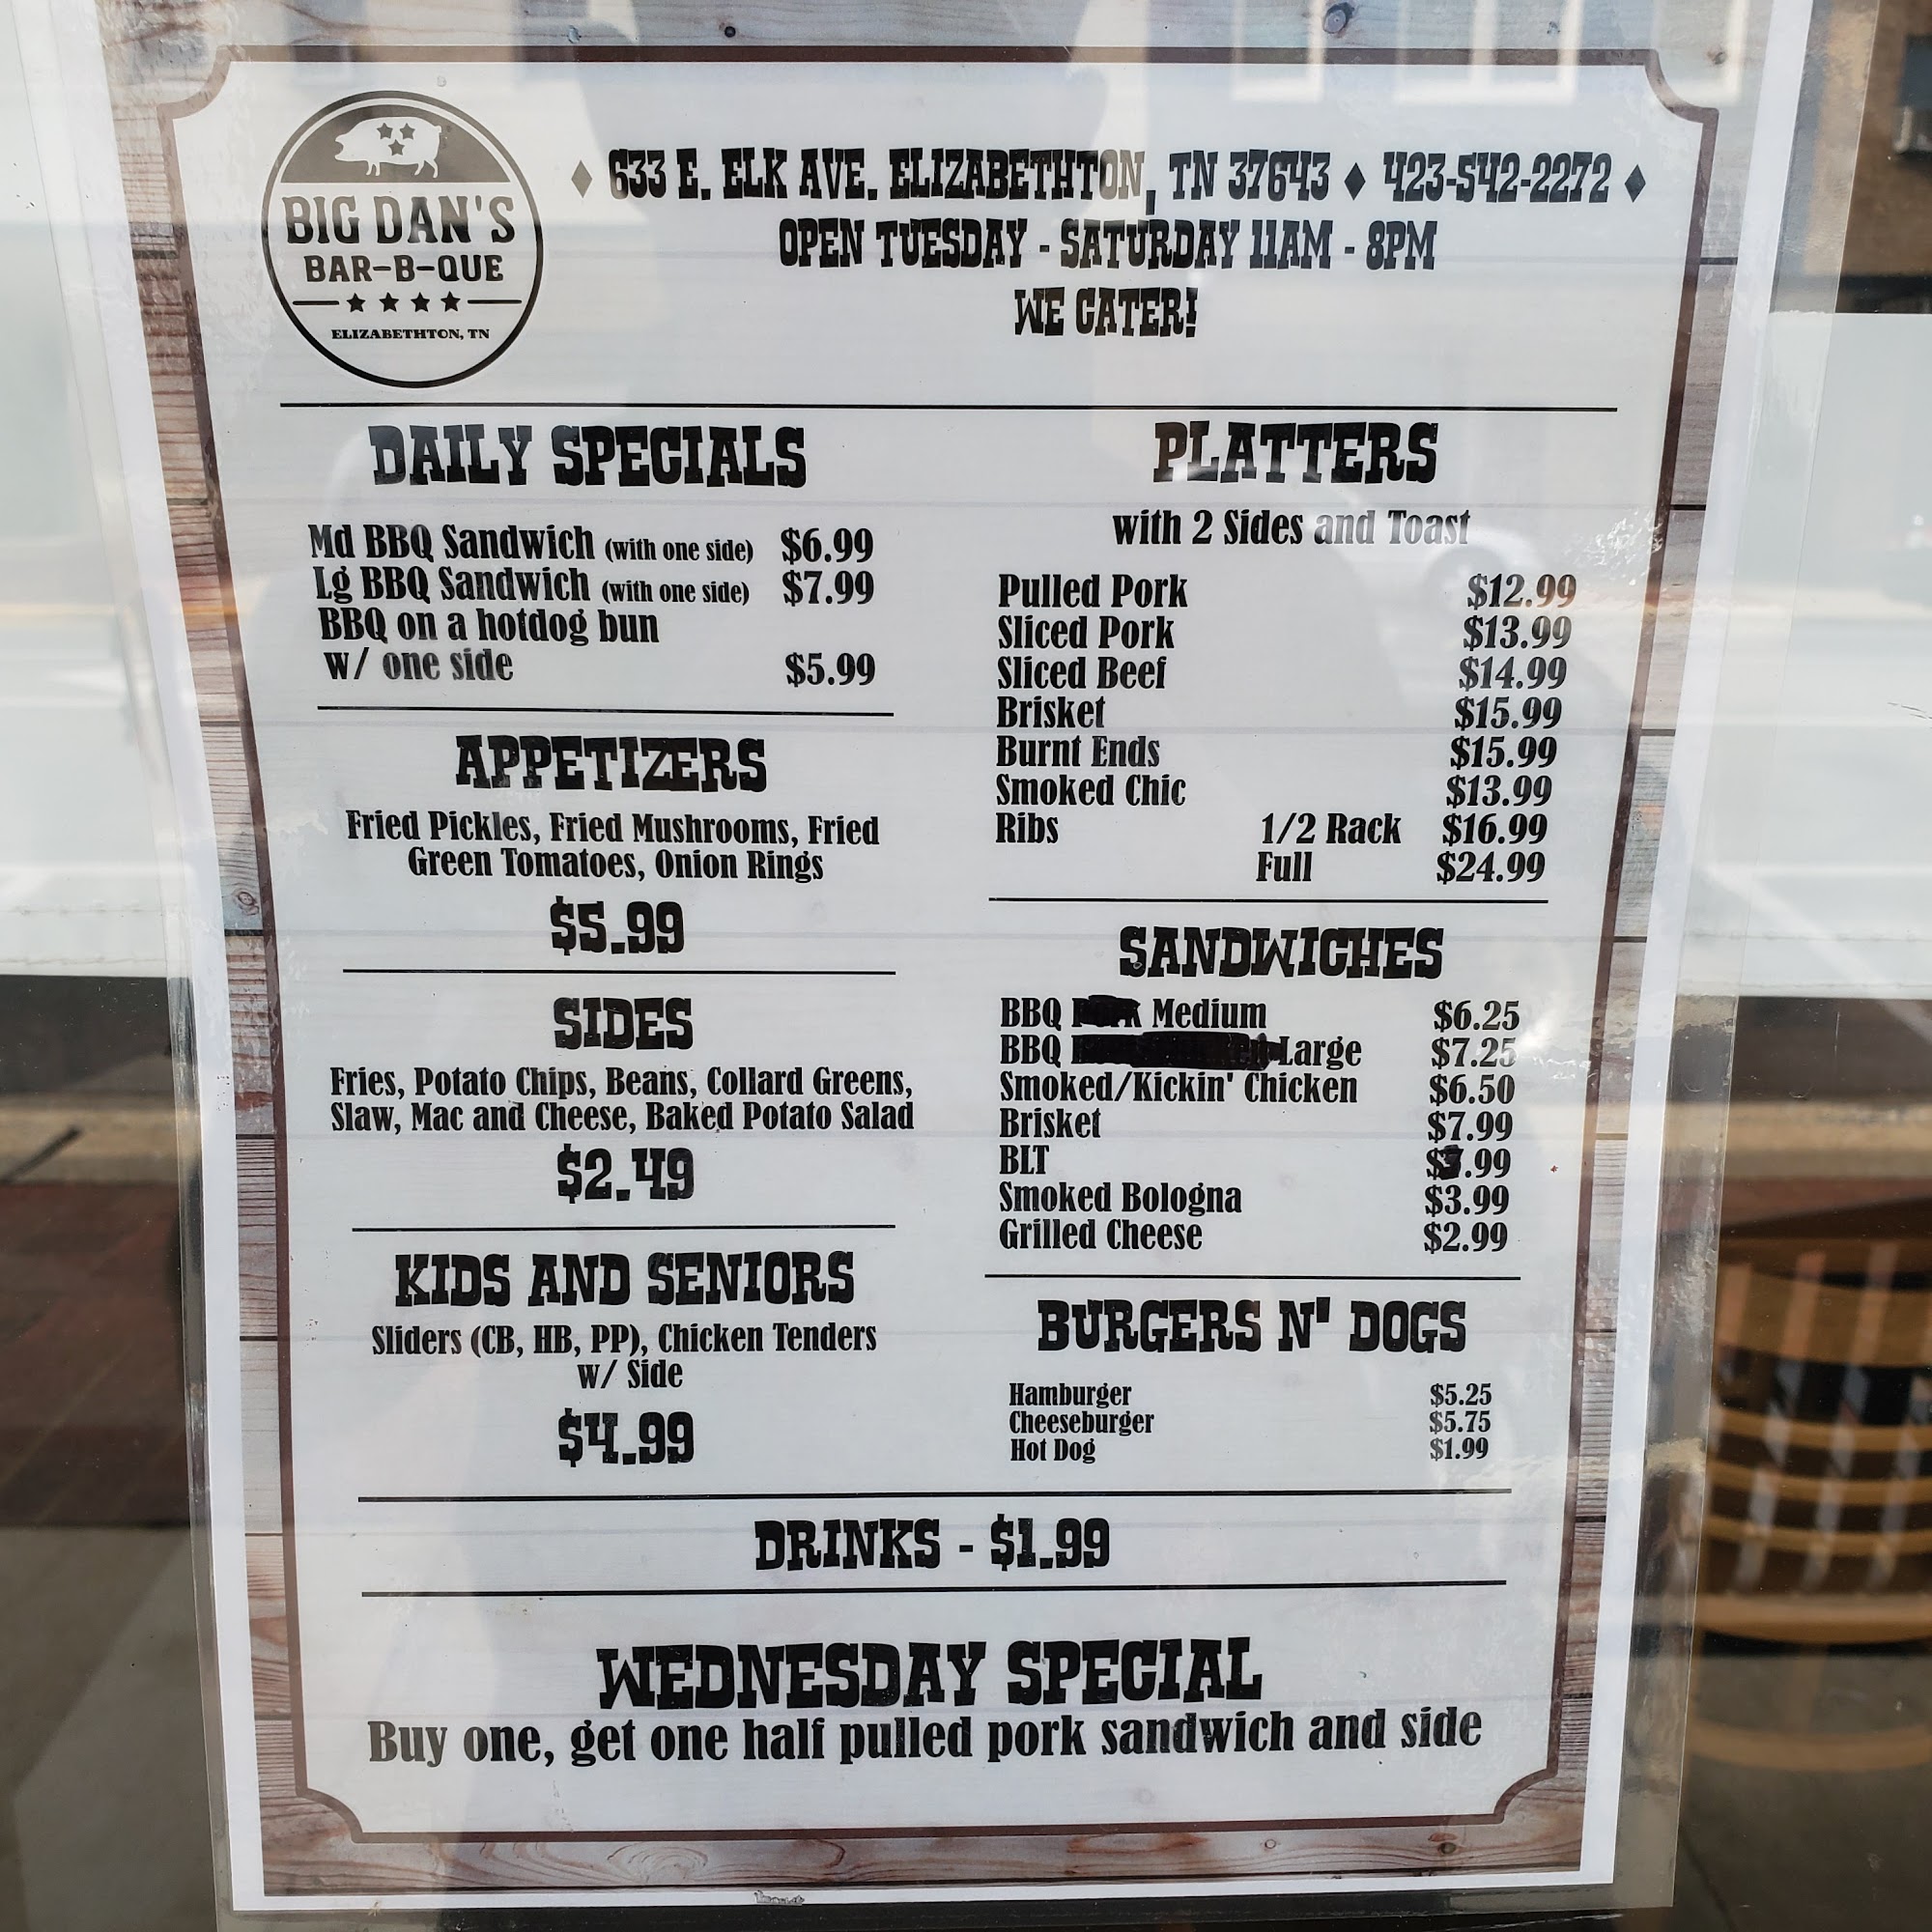 BIG DAN'S
BAR-B-QUE
ELIZABETHTON, TN
633 E. ELK AVE. ELIZABETHTON, TN 37643 ♦ 423-542-2272
OPEN TUESDAY - SATURDAY 11AM - 8PM
WE CATER!
DAILY SPECIALS
Md BBQ Sandwich (with one side) $6.99
Lg BBQ Sandwich (with one side) $7.99
BBQ on a hotdog bun
w/ one side $5.99
APPETIZERS
Fried Pickles, Fried Mushrooms, Fried
Green Tomatoes, Onion Rings
$5.99
SIDES
Fries, Potato Chips, Beans, Collard Greens,
Slaw, Mac and Cheese, Baked Potato Salad
$2.49
KIDS AND SENIORS
Sliders (CB, HB, PP), Chicken Tenders
w/ Side
$4.99
PLATTERS
with 2 Sides and Toast
Pulled Pork $12.99
Sliced Pork $13.99
Sliced Beef $14.99
Brisket $15.99
Burnt Ends $15.99
Smoked Chic $13.99
Ribs 1/2 Rack $16.99
Full $24.99
SANDWICHES
BBQ Medium $6.25
BBQ Large $7.25
Smoked/Kickin' Chicken $6.50
Brisket $7.99
BLT
Smoked Bologna $3.99
Grilled Cheese $2.99
BURGERS N' DOGS
Hamburger $5.25
Cheeseburger $5.75
Hot Dog $1.99
DRINKS - $1.99
WEDNESDAY SPECIAL
Buy one, get one half pulled pork sandwich and side